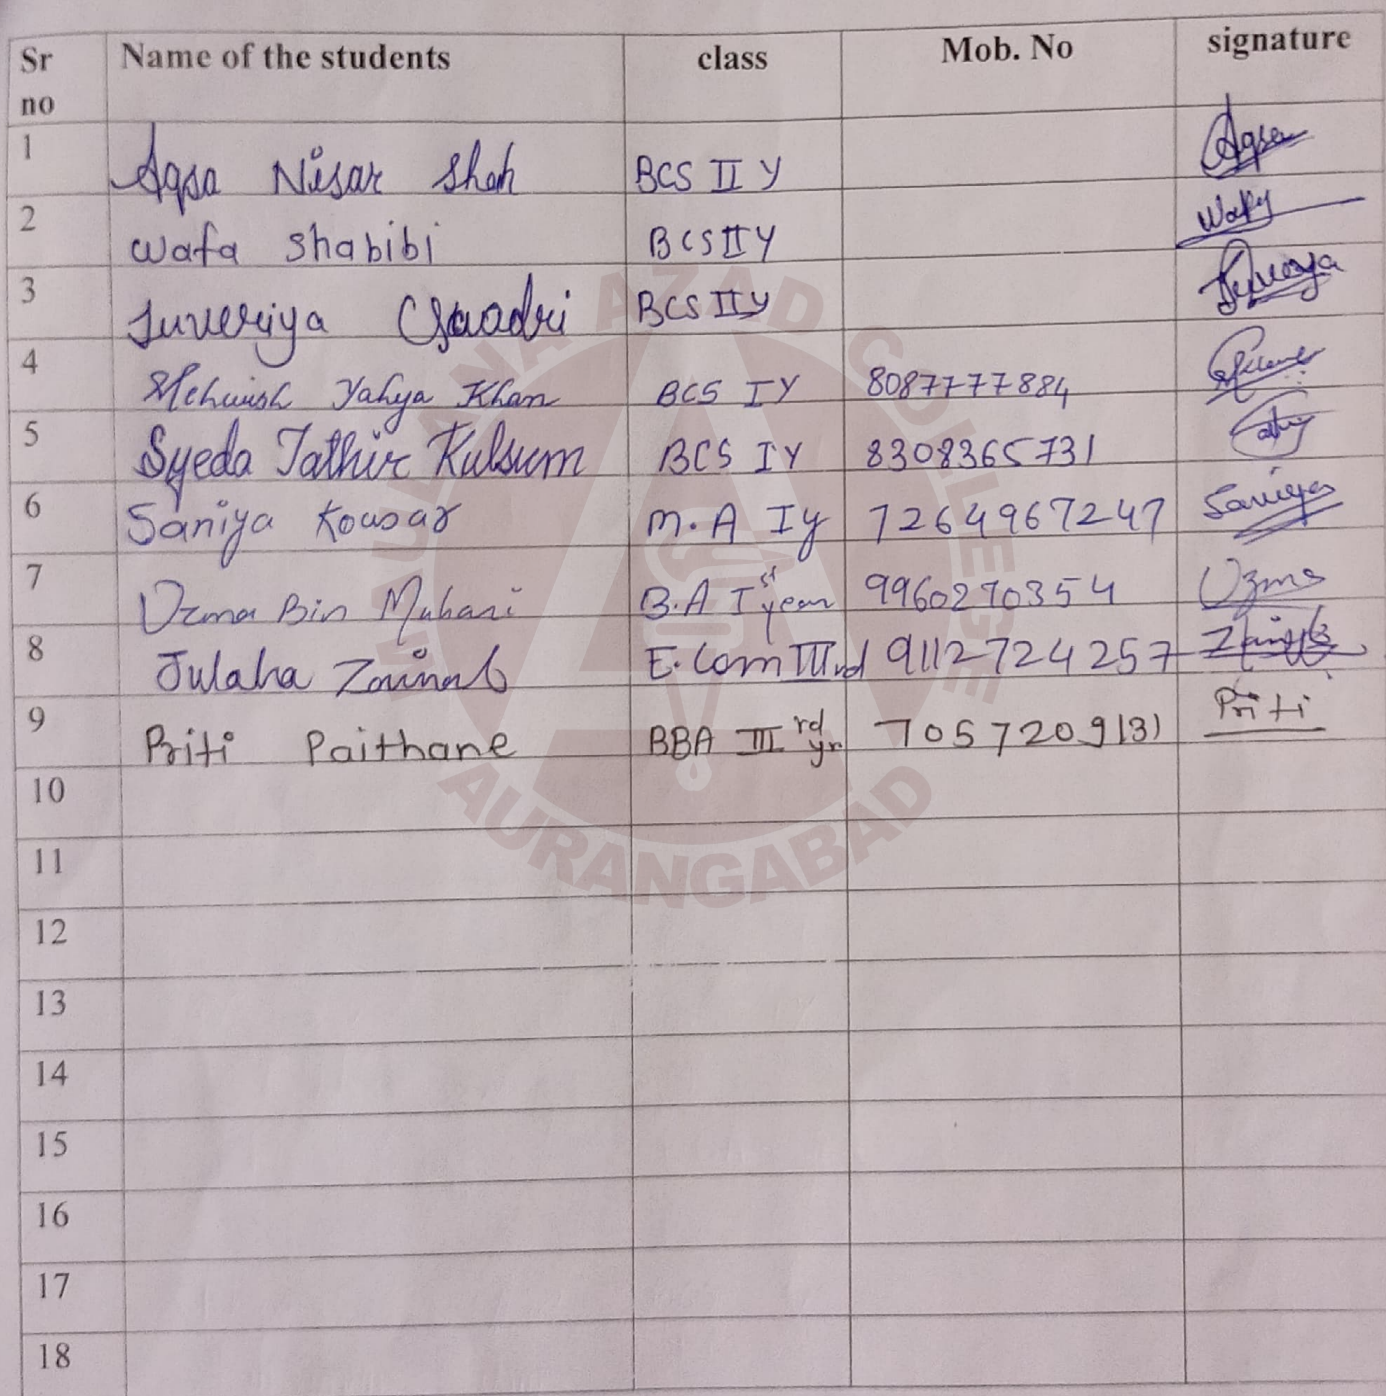 Sr no Name of the students class Mob. No signature
1 Aqsa Nisar Shah BCS II Y Aqsa
2 Wafa Shabibi BCS II Y Wafa
3 Juveriya BCS II Y
4 Mehwish Yahya Khan BCS I Y 8087777884
5 Syeda Tathir Kulsum BCS I Y 8308365731
6 Saniya Kousar M.A I y 7264967247 Saniya
7 Uzma Bin Muhani B.A I st year 9960270354 Uzma
8 Julaha Zainab E.Com IIIrd 9112724257
9 Priti Paithane BBA III rd yr 7057209131 Priti
10
11
12
13
14
15
16
17
18
AZAD COLLEGE
AURANGABAD